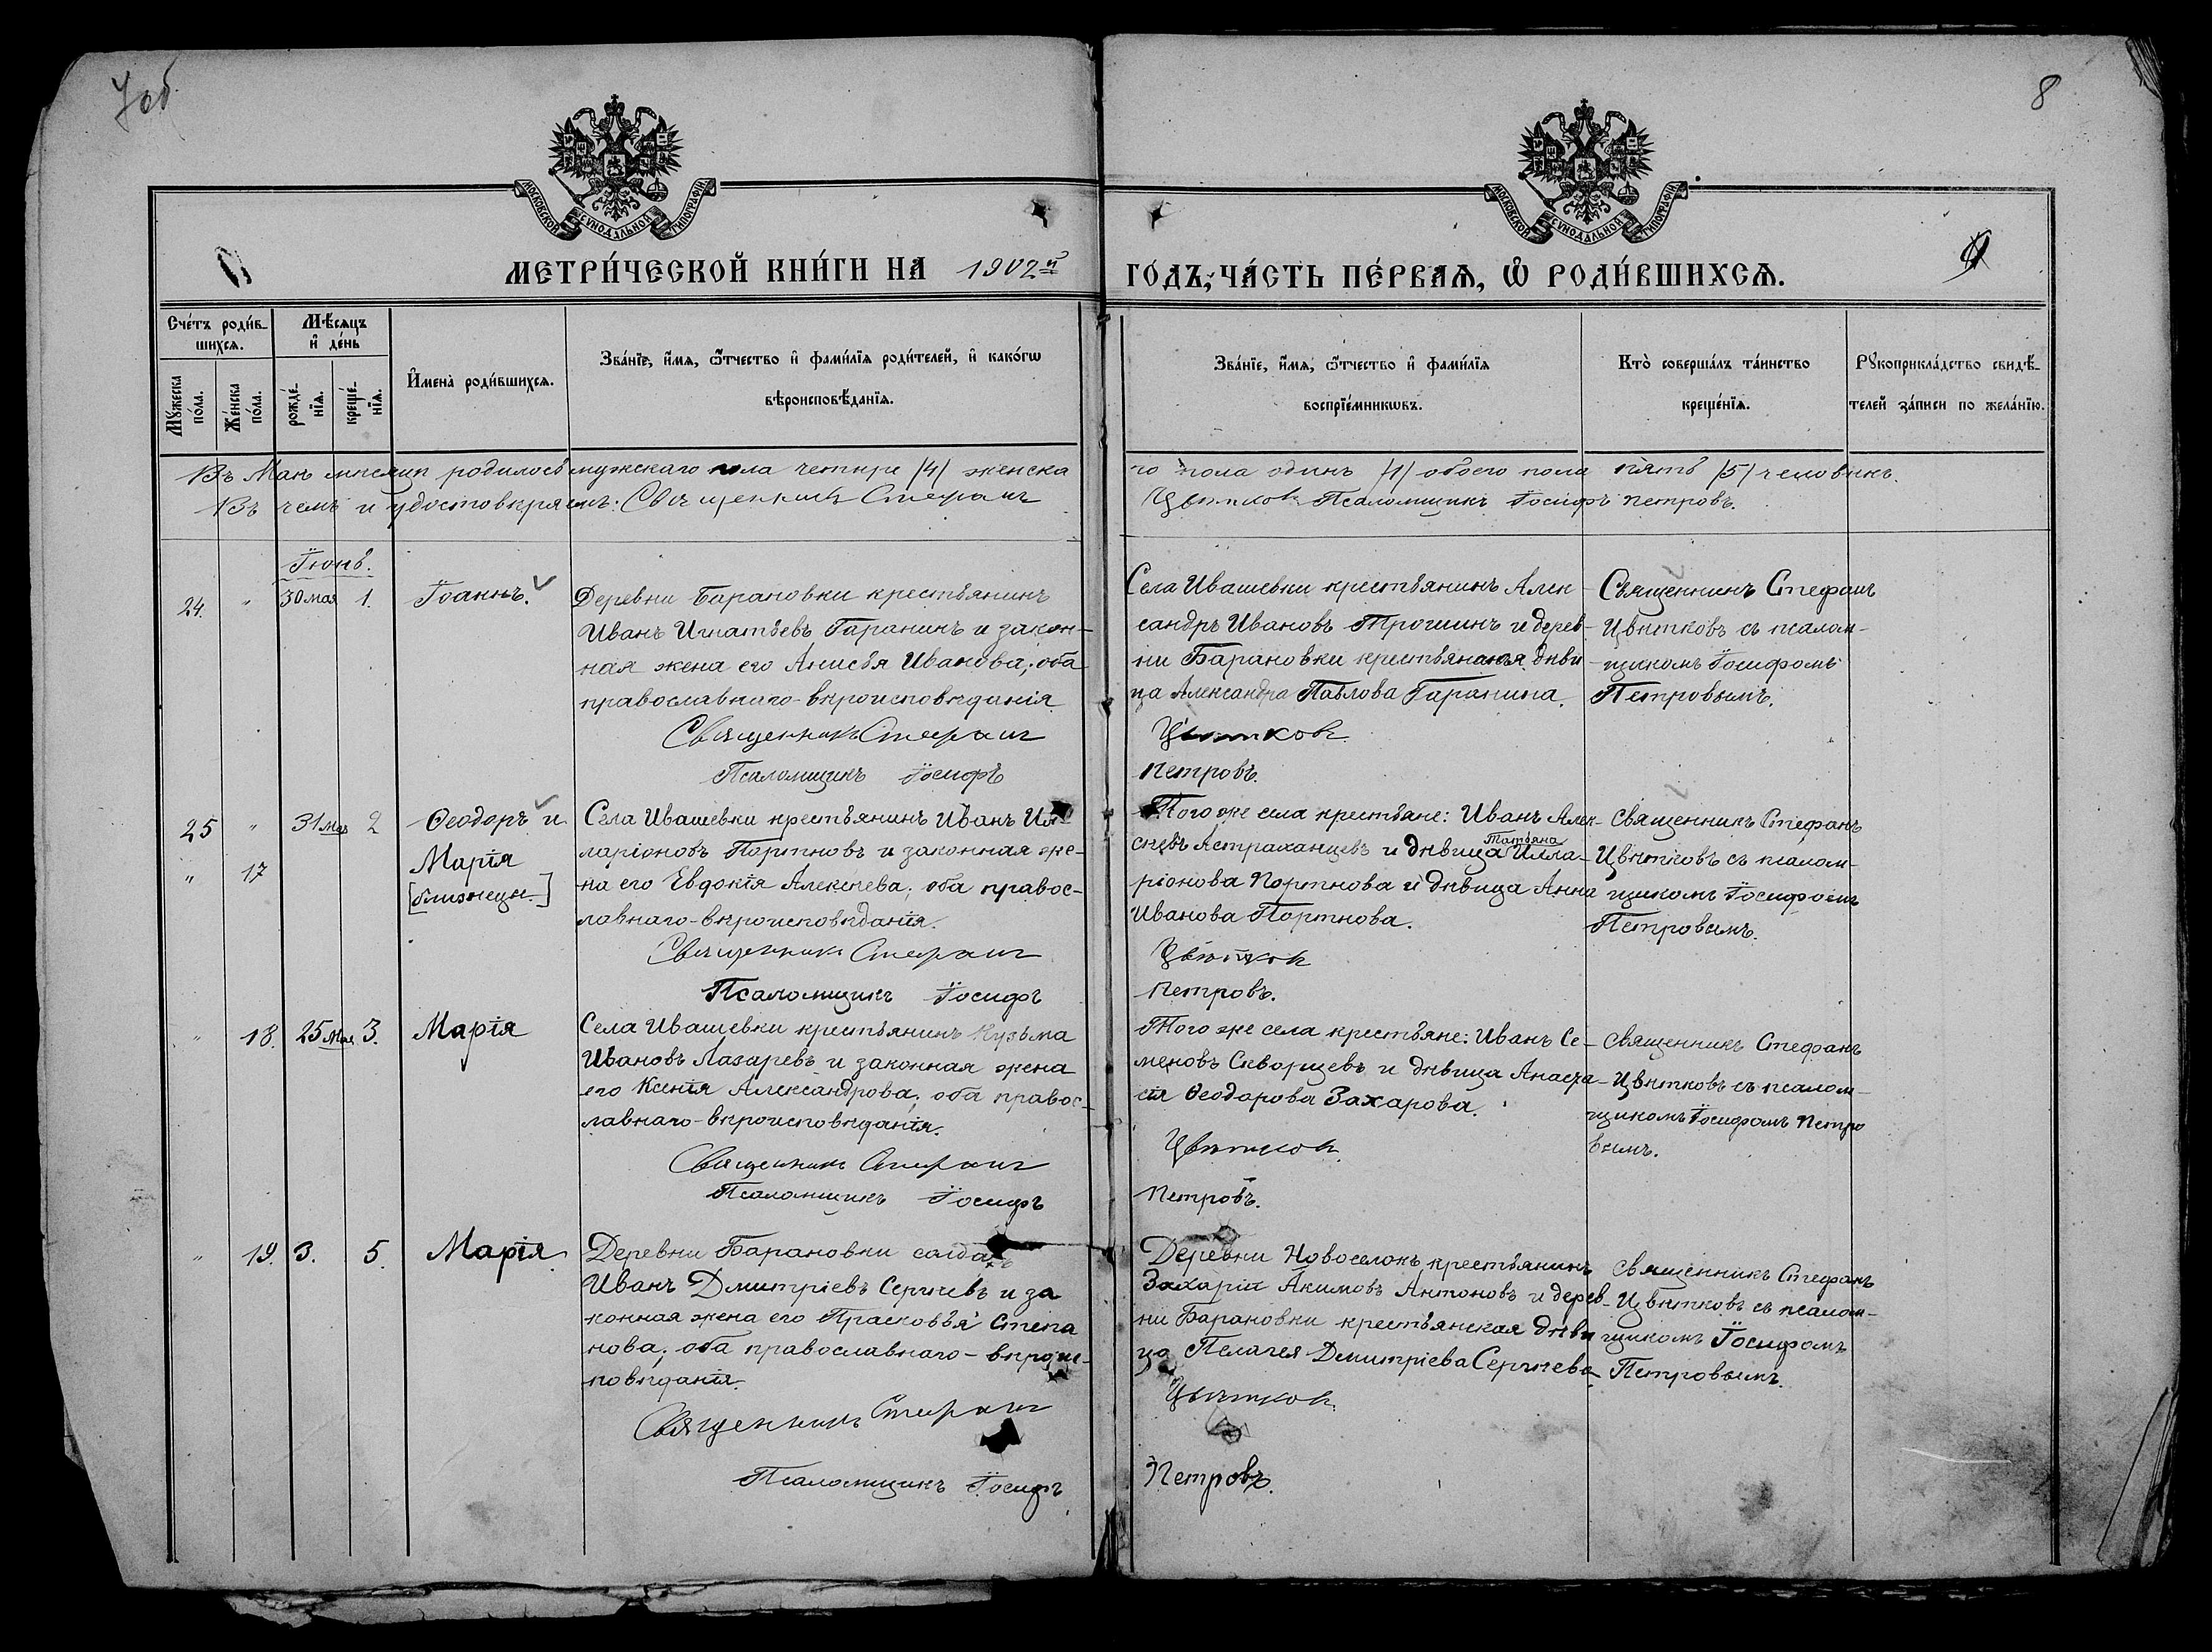 7 об
8
МОСКОВСКОЙ СѴНОДАЛЬНОЙ ТИПОГРАФІИ
МОСКОВСКОЙ СѴНОДАЛЬНОЙ ТИПОГРАФІИ
МЕТРИ́ЧЕСКОЙ КНИ́ГИ НА 1902й ГОДЪ, ЧА́СТЬ ПЕ́РВАѦ, Ѡ҆ РОДИ́ВШИХСѦ.
Сче́тъ роди́в-
шихсѧ.
Мꙋ́жеска
по́ла.
Же́нска
по́ла.
Мѣ́сѧцъ
и҆ де́нь
рожде́-
нїѧ.
креще́-
нїѧ.
И҆мена̀ роди́вшихсѧ.
Зва́нїе, и҆́мѧ, ѻ҆́тчество и҆ фами́лїѧ роди́телей, и҆ како́гѡ
вѣроисповѣ́данїѧ.
Зва́нїе, и҆́мѧ, ѻ҆́тчество и҆ фами́лїѧ
воспрїе́мникѡвъ.
Кто̀ соверша́лъ та́инство
креще́нїѧ.
Рꙋкоприкла́дство свидѣ́-
телей за́писи по жела́нїю.
Въ Маѣ мѣсяцѣ родилось мужскаго пола четыре /4/ женска
го пола одинъ /1/ обоего пола пять /5/ человѣкъ.
Въ чемъ и удостовѣряемъ: Священникъ Стефанъ
Цвѣтковъ Псаломщикъ Іосифъ Петровъ.
Іюнь.
24. " 30 мая 1. Іоаннъ.
Деревни Барановки крестьянинъ
Иванъ Игнатьевъ Гаранинъ и закон-
ная жена его Анисья Иванова; оба
православнаго-вѣроисповѣданія
Священникъ Стефанъ
Псаломщикъ Іосифъ
Села Ивашевки крестьянинъ Алек-
сандръ Ивановъ Трошинъ и дерев-
ни Барановки крестьянская дѣви
ца Александра Павлова Гаранина.
Цвѣтковъ
Петровъ.
Священникъ Стефанъ
Цвѣтковъ съ псалом-
щикомъ Іосифомъ
Петровымъ.
25 " 31 мая 2 Ѳеодоръ и
" 17 Марія
[близнецы.]
Села Ивашевки крестьянинъ Иванъ Ил-
ларіоновъ Портновъ и законная же-
на его Евдокія Алексѣева; оба правос-
лавнаго-вѣроисповѣданія.
Священникъ Стефанъ
Псаломщикъ Іосифъ
Того же села крестьяне: Иванъ Алек-
сѣевъ Астраханцевъ и дѣвица Татьяна Илла-
ріонова Портнова и дѣвица Анна
Иванова Портнова.
Цвѣтковъ
Петровъ.
Священникъ Стефанъ
Цвѣтковъ съ псалом-
щикомъ Іосифомъ
Петровымъ.
" 18. 25 мая 3. Марія
Села Ивашевки крестьянинъ Кузьма
Ивановъ Лазаревъ и законная жена
его Ксенія Александрова; оба правос-
лавнаго-вѣроисповѣданія.
Священникъ Стефанъ
Псаломщикъ Іосифъ
Того же села крестьяне: Иванъ Се-
меновъ Скворцевъ и дѣвица Анаста-
сія Ѳеодорова Захарова.
Цвѣтковъ
Петровъ.
Священникъ Стефанъ
Цвѣтковъ съ псалом-
щикомъ Іосифомъ Петро
вымъ.
" 19. 3. 5. Марія
Деревни Барановки солдатъ
Иванъ Дмитріевъ Сергѣевъ и за
конная жена его Прасковья Степа
нова; оба православнаго-вѣроис-
повѣданія.
Священникъ Стефанъ
Псаломщикъ Іосифъ
Деревни Новоселокъ крестьянинъ
Захарій Акимовъ Антоновъ и дерев-
ни Барановки крестьянская дѣви
ца Пелагея Дмитріева Сергѣева
Цвѣтковъ
Петровъ.
Священникъ Стефанъ
Цвѣтковъ съ псалом-
щикомъ Іосифомъ
Петровымъ.